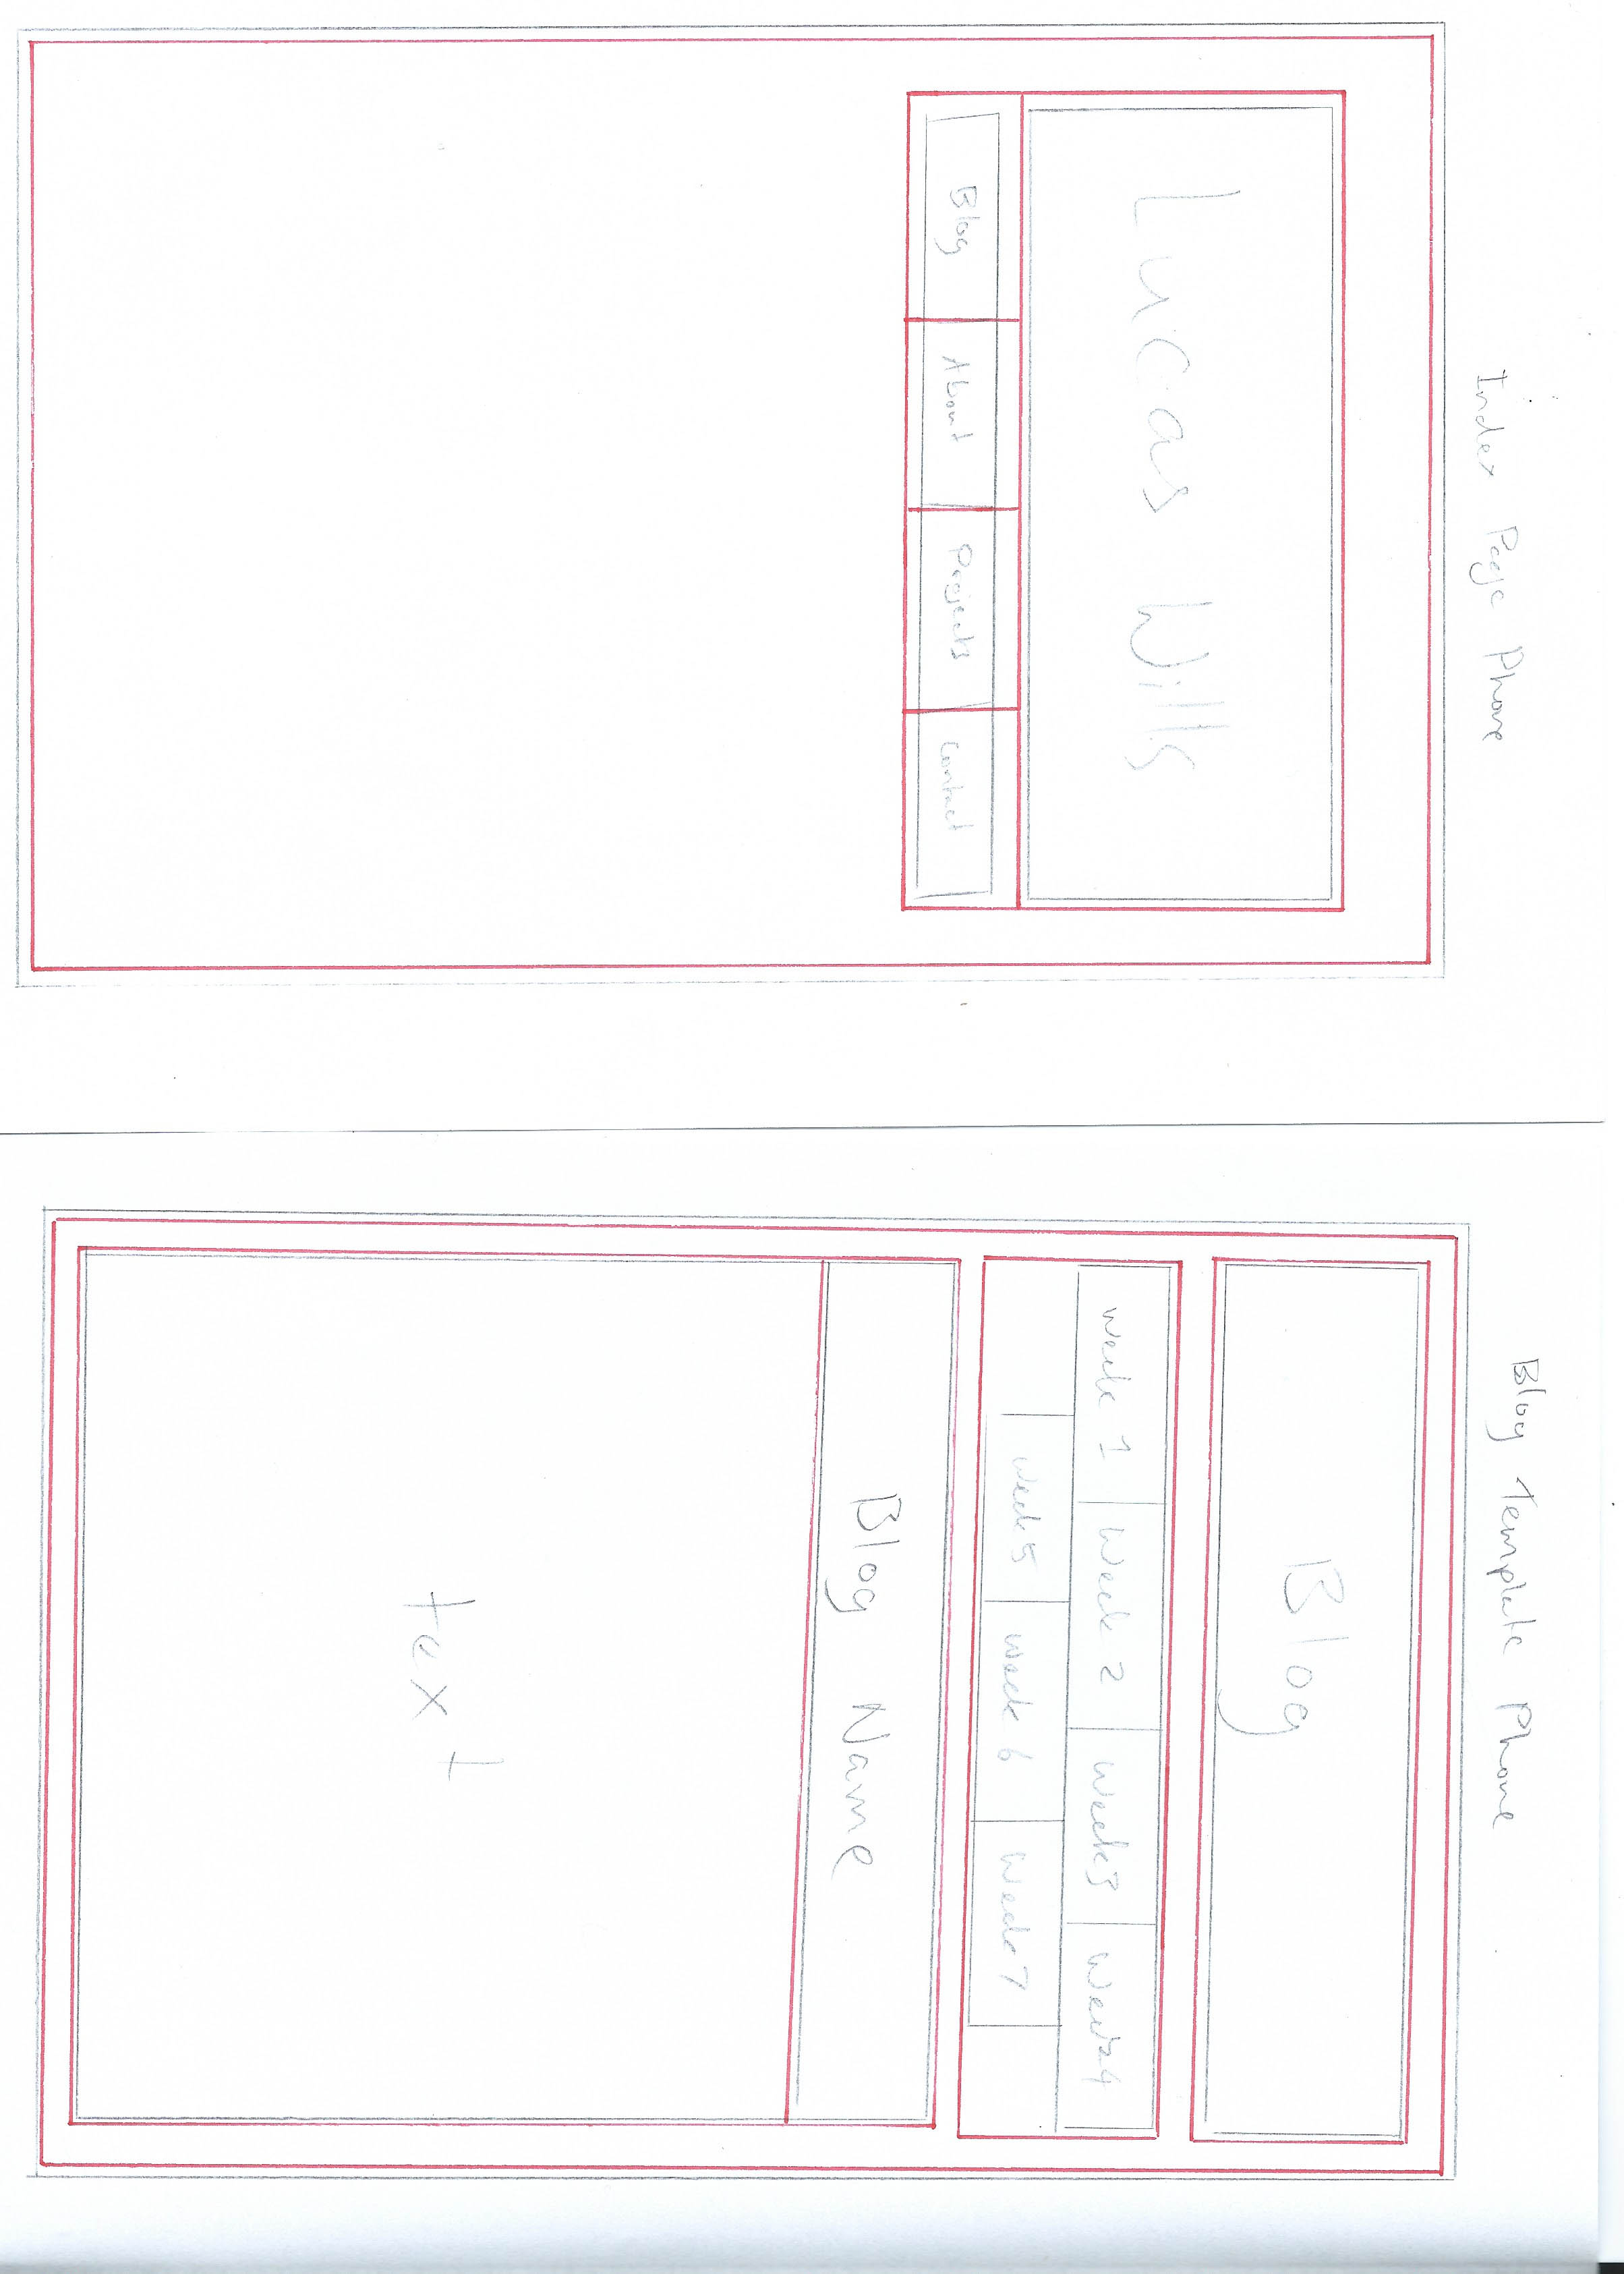 Index Page Phone
Lucas Wills
Blog About Projects Contact
Blog Template Phone
Blog
Week 1 Week 2 Week3 Week4
Week5 Week 6 Week7
Blog Name
text